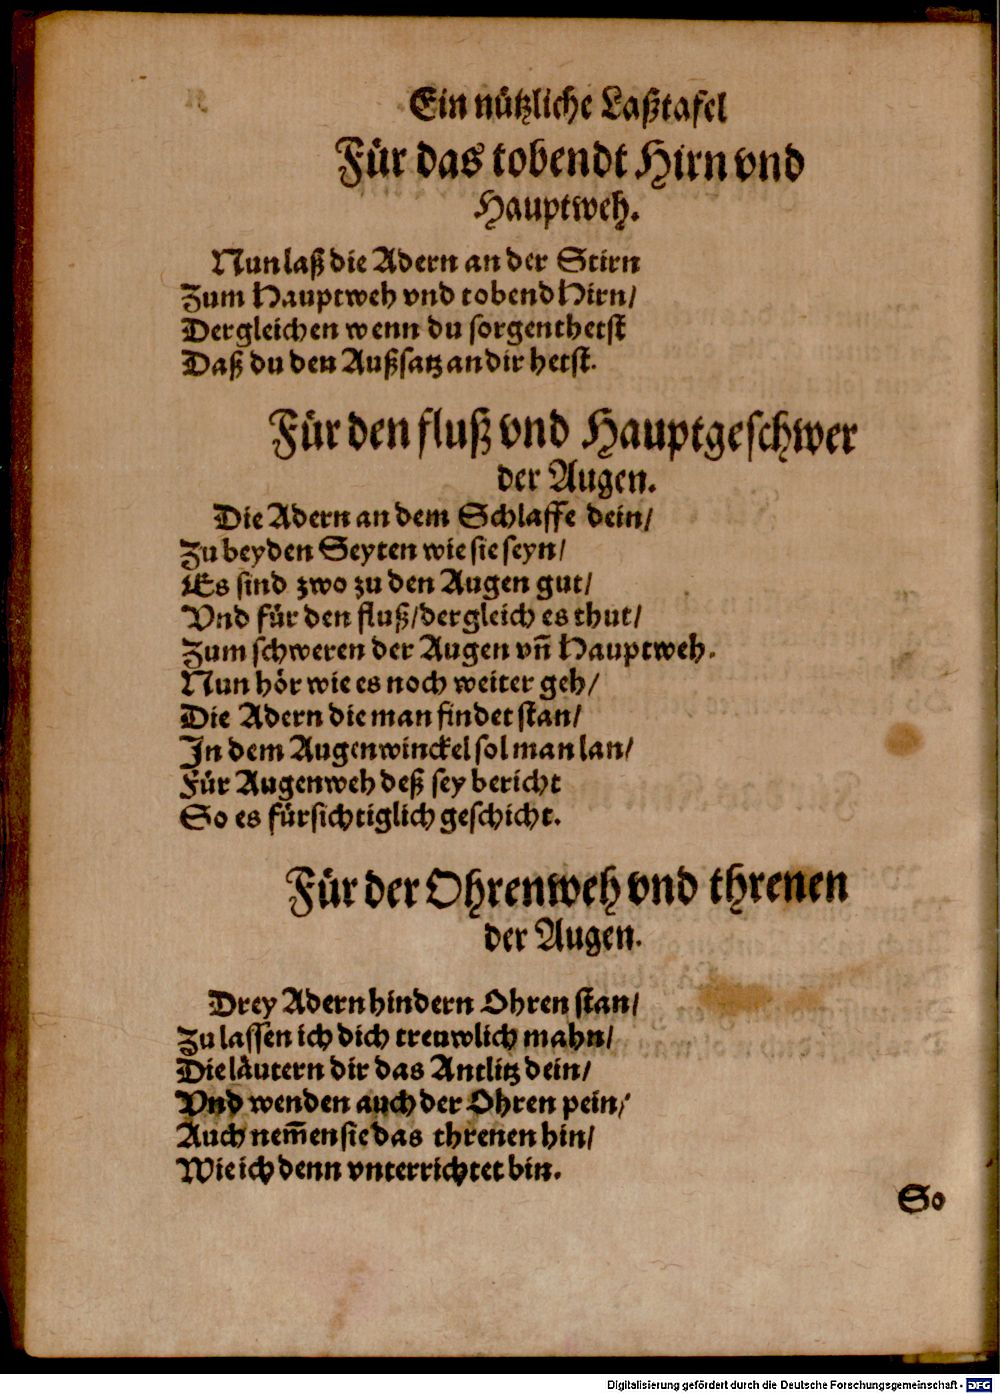 Ein nützliche Laßtafel
Für das tobendt Hirn vnd
Hauptweh.
Nun laß die Adern an der Stirn
Zum Hauptweh vnd tobend Hirn/
Dergleichen wenn du sorgen thetst
Daß du den Außsatz an dir hetst.
Für den fluß vnd Hauptgeschwer
der Augen.
Die Adern an dem Schlaffe dein/
Zu beyden Seyten wie sie seyn/
Es sind zwo zu den Augen gut/
Vnd für den fluß/dergleich es thut/
Zum schweren der Augen vn̄ Hauptweh.
Nun hör wie es noch weiter geh/
Die Adern die man findet stan/
In dem Augenwinckel sol man lan/
Für Augenweh deß sey bericht
So es fürsichtiglich geschicht.
Für der Ohrenweh vnd threnen
der Augen.
Drey Adern hindern Ohren stan/
Zu lassen ich dich treuwlich mahn/
Die läutern dir das Antlitz dein/
Vnd wenden auch der Ohren pein/
Auch nem̄en sie das threnen hin/
Wie ich denn vnterrichtet bin.
So
Digitalisierung gefördert durch die Deutsche Forschungsgemeinschaft - DFG